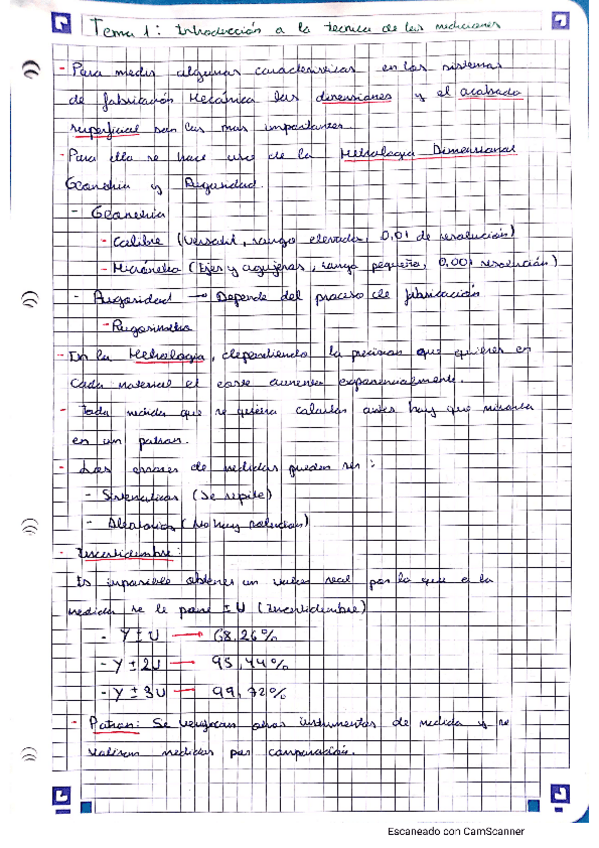 Tema 1: Introducción a la técnica de las mediciones
- Para medir algunas características en los sistemas
de fabricación Mecánica las dimensiones y el acabado
superficial son las mas importantes
- Para ello se hace uso de la Metrología Dimensional
Geometría y Rugosidad.
- Geometría
- Calibre (Versatil, rango elevado, 0,01 de resolución)
- Micrómetro (Ejes y agujeros, rango pequeño, 0,001 resolución)
- Rugosidad → Depende del proceso de fabricación
- Rugosímetro
- En la Metrología, dependiendo la precision que quieres en
cada material el coste aumenta exponencialmente.
- Toda medida que se quiera calcular antes hay que mirarla
en un patron.
- Los errores de medidas pueden ser:
- Sistematicos (Se repite)
- Aleatorios (No hay solucion)
- Incertidumbre:
Es imposible obtener un valor real por lo que a la
medida se le pone ± U (Incertidumbre)
- Y ± U → 68,26%
- Y ± 2U → 95,44%
- Y ± 3U → 99,72%
- Patron: Se verifican otros instrumentos de medida y se
realizan medidas por comparación.
Escaneado con CamScanner